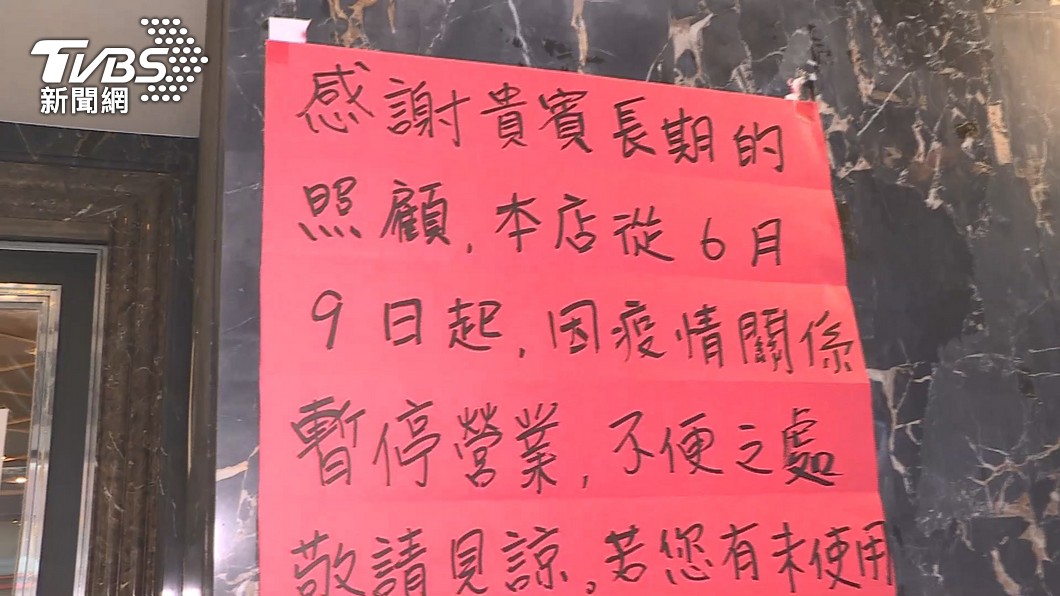 TVBS
新聞網
感謝貴賓長期的
照顧,本店從6月
9日起,因疫情關係
暫停營業,不便之處
敬請見諒。若您有未使用